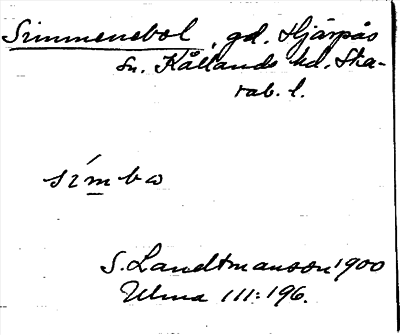 Simmenebol, gd. Hjärpås
sn. Kållands hd. Ska-
rab. l.
símba
S. Landtmanson 1900
Ulma 111:196.